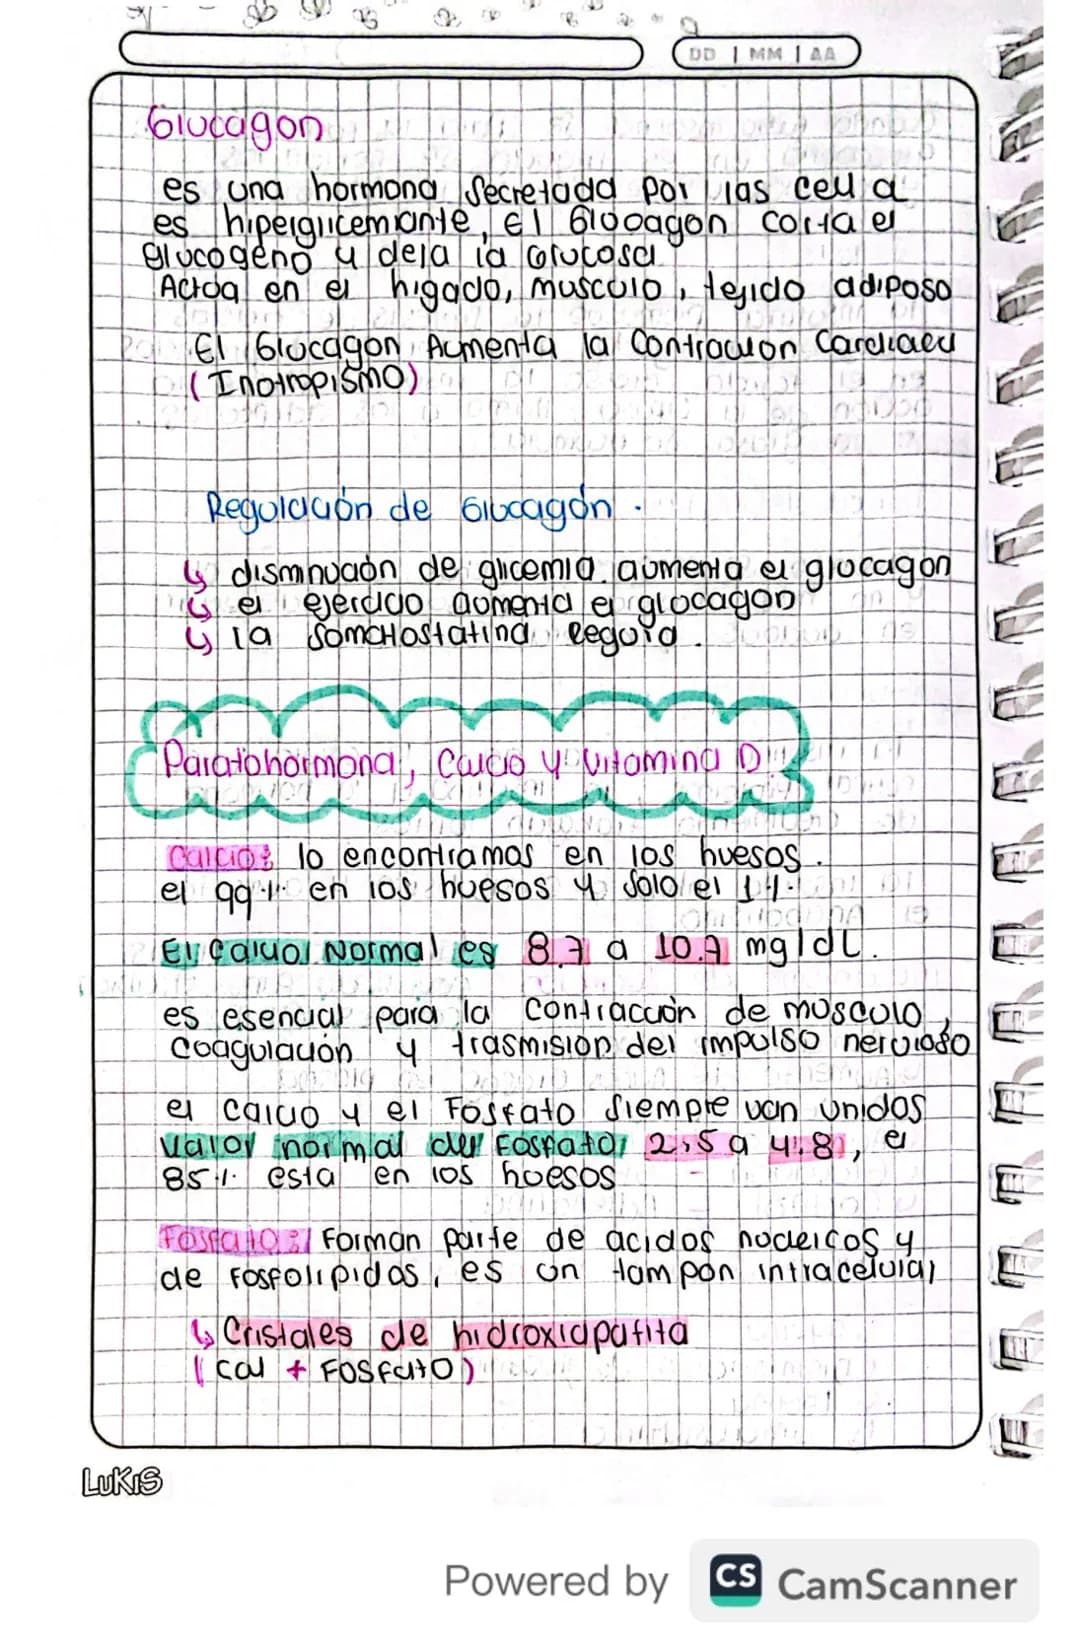 DD | MM | AA
Glucagon
es una hormona secretada por las celu a
es hiperglicemiante, El Glucagon corta el
glucogeno y deja la Glucosa
Actúa en el higado, musculo, tejido adiposo
El Glucagon Aumenta la Contracción Cardiaca
(Inotropismo)
Regulación de Glucagón.
↳ disminución de glicemia aumenta el glucagon
↳ el ejercicio aumenta el glucagon
↳ la Somatostatina Regula.
Paratohormona, Calcio y Vitamina D
Calcio: lo encontramos en los huesos.
el 99% en los huesos y solo el 1%.
El Calcio Normal es 8.7 a 10.7 mg/dL.
es esencial para la contracción de musculo,
coagulación y trasmision del impulso nervioso
el calcio y el Fosfato siempre van unidos
Valor normal del Fosfato: 2,5 a 4.8, el
85% esta en los huesos
Fosfato: Forman parte de acidos nucleicos y
de Fosfolipidos, es un tampon intracelular
↳ Cristales de hidroxiapatita
(cal + Fosfato)
LUKIS
Powered by CS CamScanner